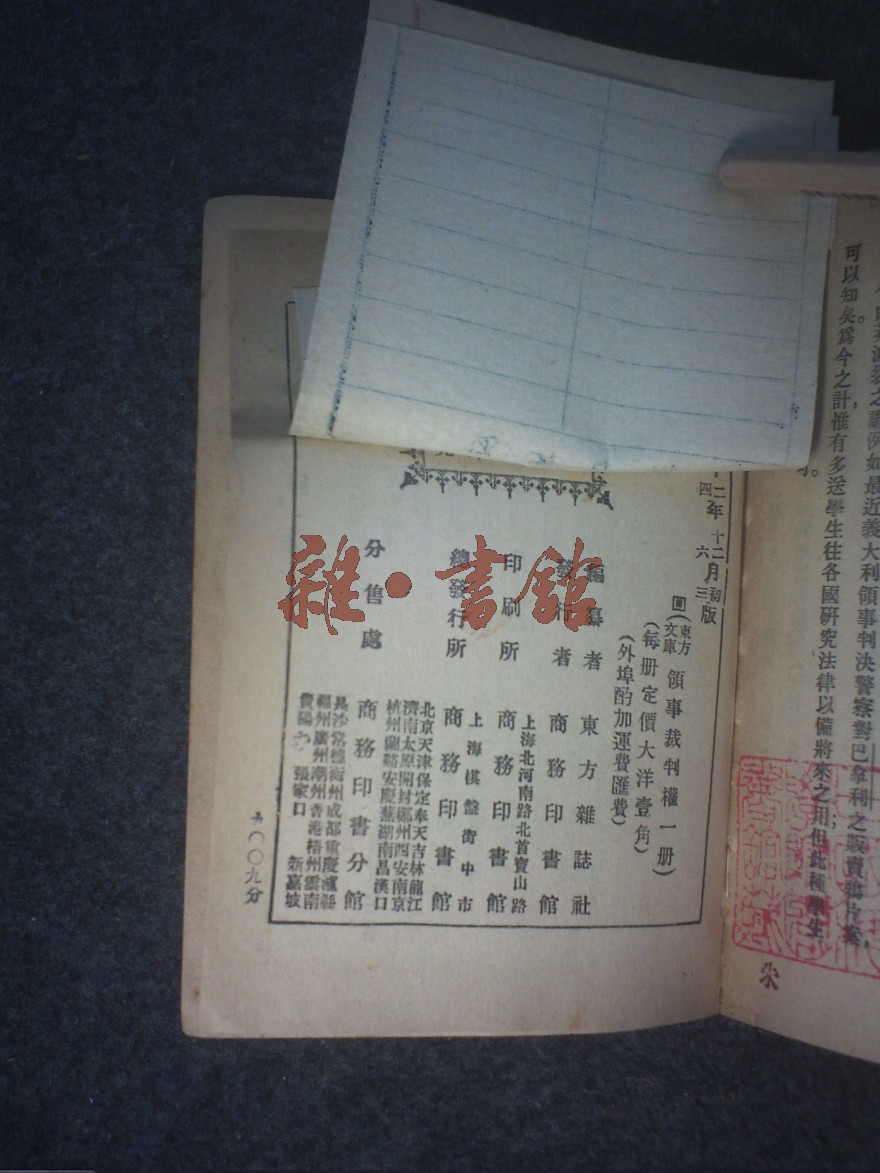 可以知矣爲今之計惟有多送學生往各國研究法律以備將來之用但此種學生
例如最近義大利領事判決警察對巴拿利之販賣鴉片案,
二年十二月初版
四 六 三
(東方文庫)領事裁判權一册)
(每册定價大洋壹角)
(外埠酌加運費匯費)
編纂者 東方雜誌社
發行者 商務印書館
印刷所 上海北河南路北首寶山路 商務印書館
總發行所 上海棋盤街中市 商務印書館
分售處 商務印書分館
北京天津保定奉天吉林龍江
濟南太原開封鄭州西安南京
杭州蘭谿安慶蕪湖南昌漢口
長沙常德衡州成都重慶瀘縣
福州廣州潮州香港梧州雲南
貴陽 張家口 新嘉坡
〇〇九分
朱
雜·書館